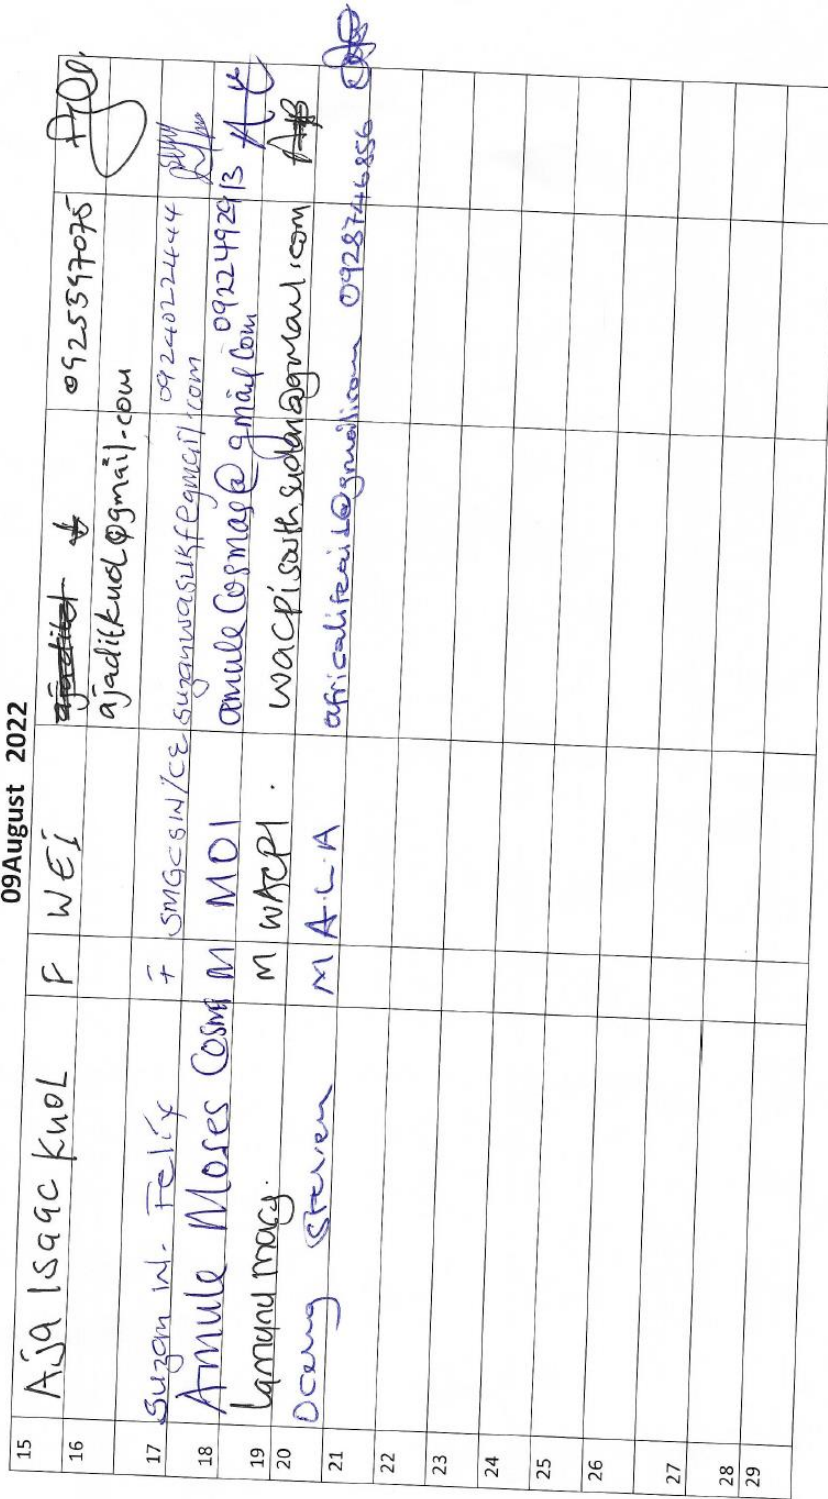 09August 2022
15
16 Aja Isaac Kuol F WEI ajadikol 0925597075
ajaditkuol@gmail.com
17 Suzan W. Felix F SMGCSW/CE suzanwasukfe@gmail.com 0924022444
18 Amule Moses Cosmas M MOI amulecosmas@gmail.com 0922492913
19 Lamunu mercy. M WACPI. wacpisouthsudan@gmail.com
20 Oceng Steven M A.L.A africalifeaid@gmail.com 0928746856
21
22
23
24
25
26
27
28
29